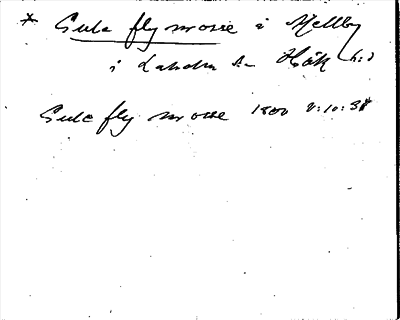 * Gule fly mosse i Mellby
i Laholm Hök h:d
Gule fly mosse 1800 2:10:38